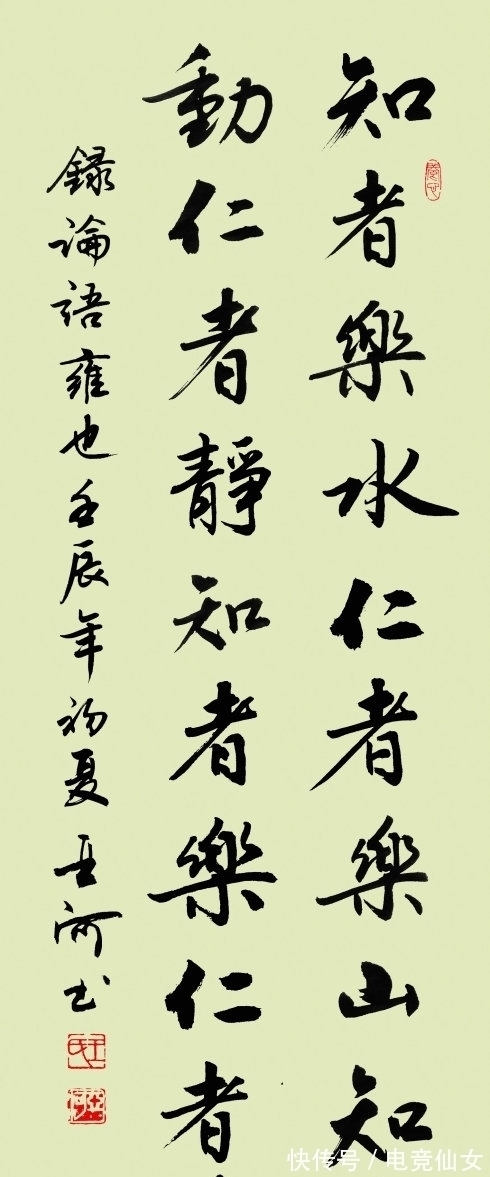 知者樂水仁者樂山知
動仁者靜知者樂仁者
錄論語雍也壬辰年初夏
河书
快传号/电竞仙女